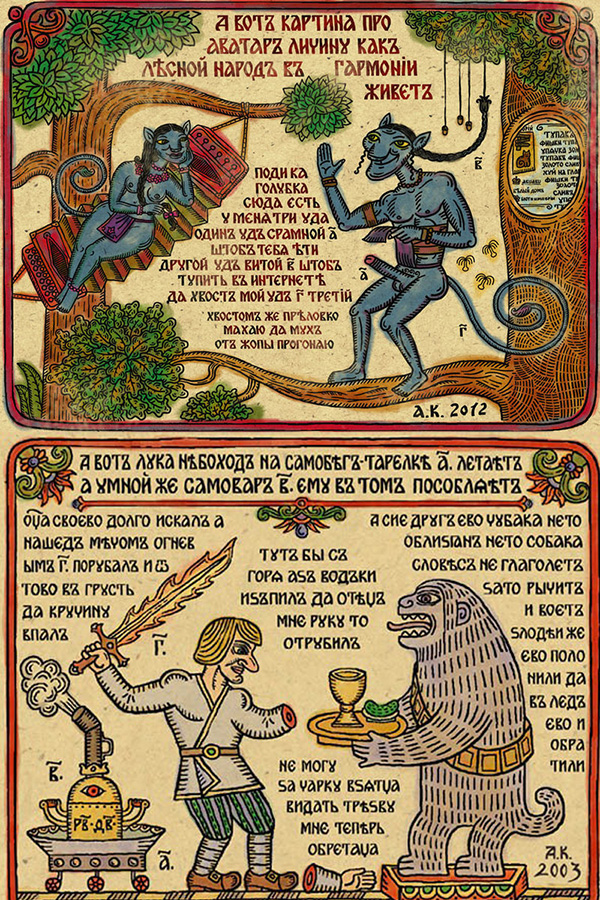 А ВОТЪ КАРТИНА ПРО
АВАТАРЪ ЛИЧИНУ КАКЪ
ЛѢСНОЙ НАРОДЪ ВЪ ГАРМОНІИ
ЖИВЕТЪ
ПОДИ КА
ГОЛУБКА
СЮДА ЕСТЬ
У МЕНЯ ТРИ УДА
ОДИНЪ УДЪ СРАМНОЙ А҃
ШТОБЪ ТЕБА ѢТИ
ДРУГОЙ УДЪ ВИТОЙ В҃ ШТОБЪ
ТУПИТЬ ВЪ ИНТЕРНЕТѢ
ДА ХВОСТЪ МОЙ УДЪ Г҃ ТРЕТІЙ
ХВОСТОМЪ ЖЕ ПРѢЛОВКО
МАХАЮ ДА МУХЪ
ОТЪ ЖОПЫ ПРОГОНЯЮ
В҃
А҃
Г҃
А.К. 2012
А ВОТЪ ЛУКА НѢБОХОДЪ НА САМОБѢГЪ-ТАРЕЛКѢ А҃. ЛЕТАѢТЪ
А УМНОЙ ЖЕ САМОВАРЪ В҃. ЕМУ ВЪ ТОМЪ ПОСОБЛЯѢТЪ
ОТЦА СВОЕВО ДОЛГО ИСКАЛЪ А
НАШЕДЪ МѢЧОМЪ ОГНЕВ
ЫМЪ Г҃. ПОРУБАЛЪ И Ѿ
ТОВО ВЪ ГРУСТЬ
ДА КРУЧИНУ
ВПАЛЪ
ТУТЪ БЫ СЪ
ГОРЯ АЗЪ ВОДЪКИ
ИЗЪПИЛЪ ДА ОТѢЦЪ
МНЕ РУКУ ТО
ОТРУБИЛЪ
А СИЕ ДРУГЪ ЕВО ЧУБАКА НЕТО
ОБЛИЗІАНЪ НЕТО СОБАКА
СЛОВѢСЪ НЕ ГЛАГОЛЕТЪ
ЗАТО РЫЧИТЪ
И ВОЕТЪ
ЗЛОДѢИ ЖЕ
ЄВО ПОЛО
НИЛИ ДА
ВЪ ЛЕДЪ
ЄВО И
ОБРА
ТИЛИ
Г҃.
В҃.
РВ҃-ДВ҃
А҃.
НЕ МОГУ
ЗА ЧАРКУ ВЗЯТЦА
ВИДАТЬ ТРѢЗВУ
МНЕ ТЕПѢРЬ
ОБРЕТАЦА
А.К.
2003